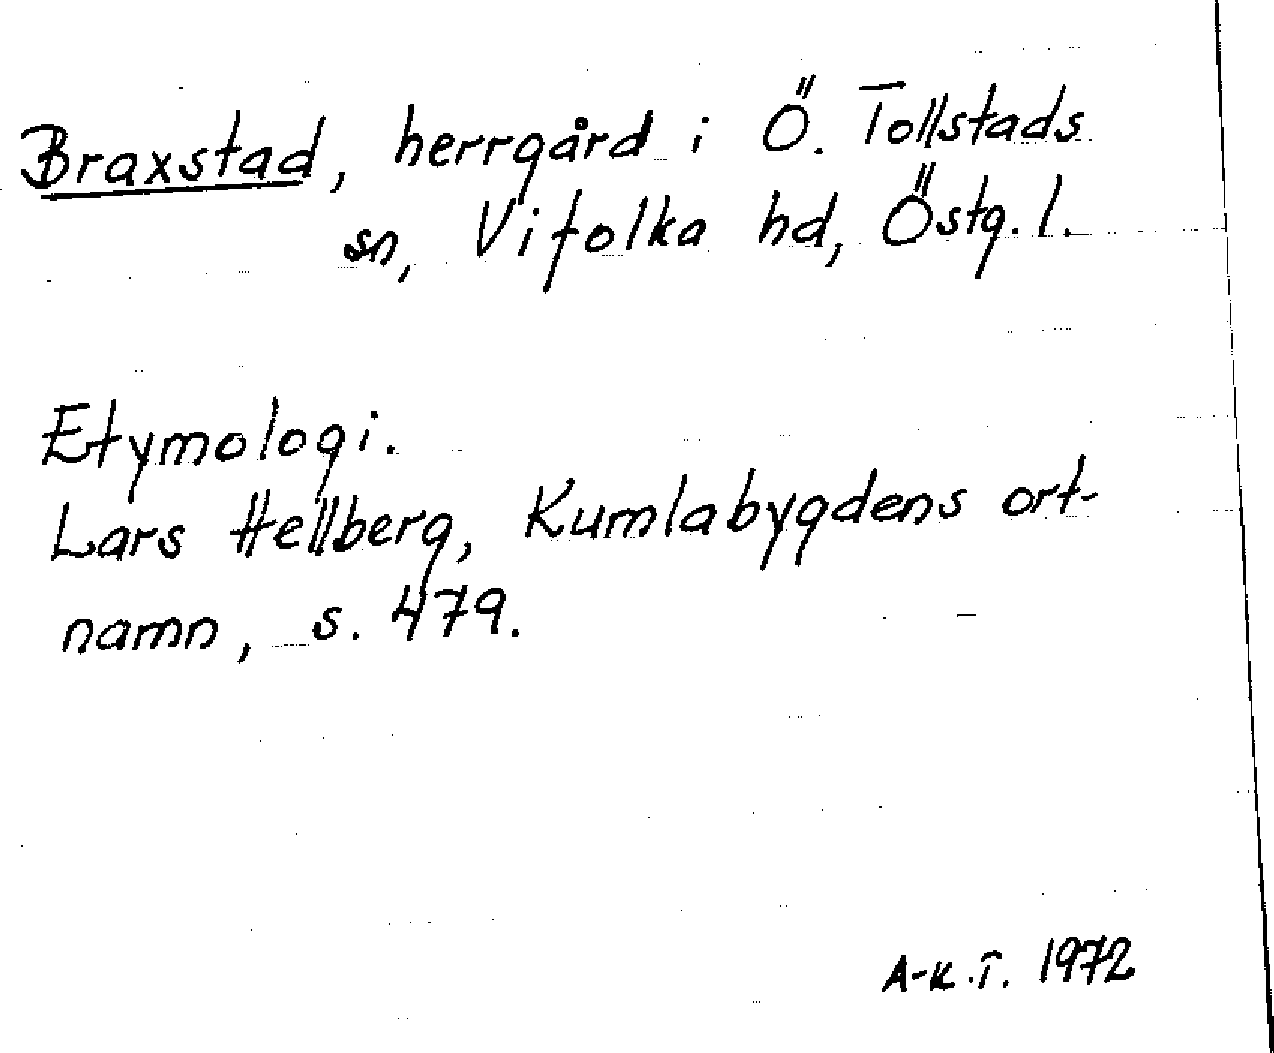 Braxstad, herrgård i Ö. Tollstads
sn, Vifolka hd, Östg. l.
Etymologi.
Lars Hellberg, Kumlabygdens ort-
namn, s. 479.
A-K.T. 1972